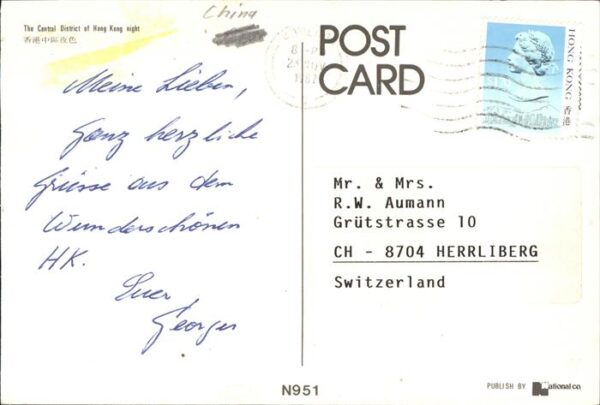 The Central District of Hong Kong night
香港中區夜色
China
POST
CARD
HONG KONG 香港
Meine Lieben,
Ganz herzliche
Grüsse aus dem
Wunderschönen
HK.
Euer
Georges
Mr. & Mrs.
R.W. Aumann
Grütstrasse 10
CH - 8704 HERRLIBERG
Switzerland
N951
PUBLISH BY National co.